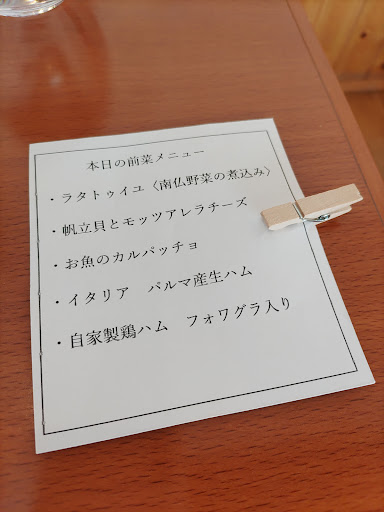 本日の前菜メニュー
・ラタトゥイユ〈南仏野菜の煮込み〉
・帆立貝とモッツアレラチーズ
・お魚のカルパッチョ
・イタリア　パルマ産生ハム
・自家製鶏ハム　フォワグラ入り